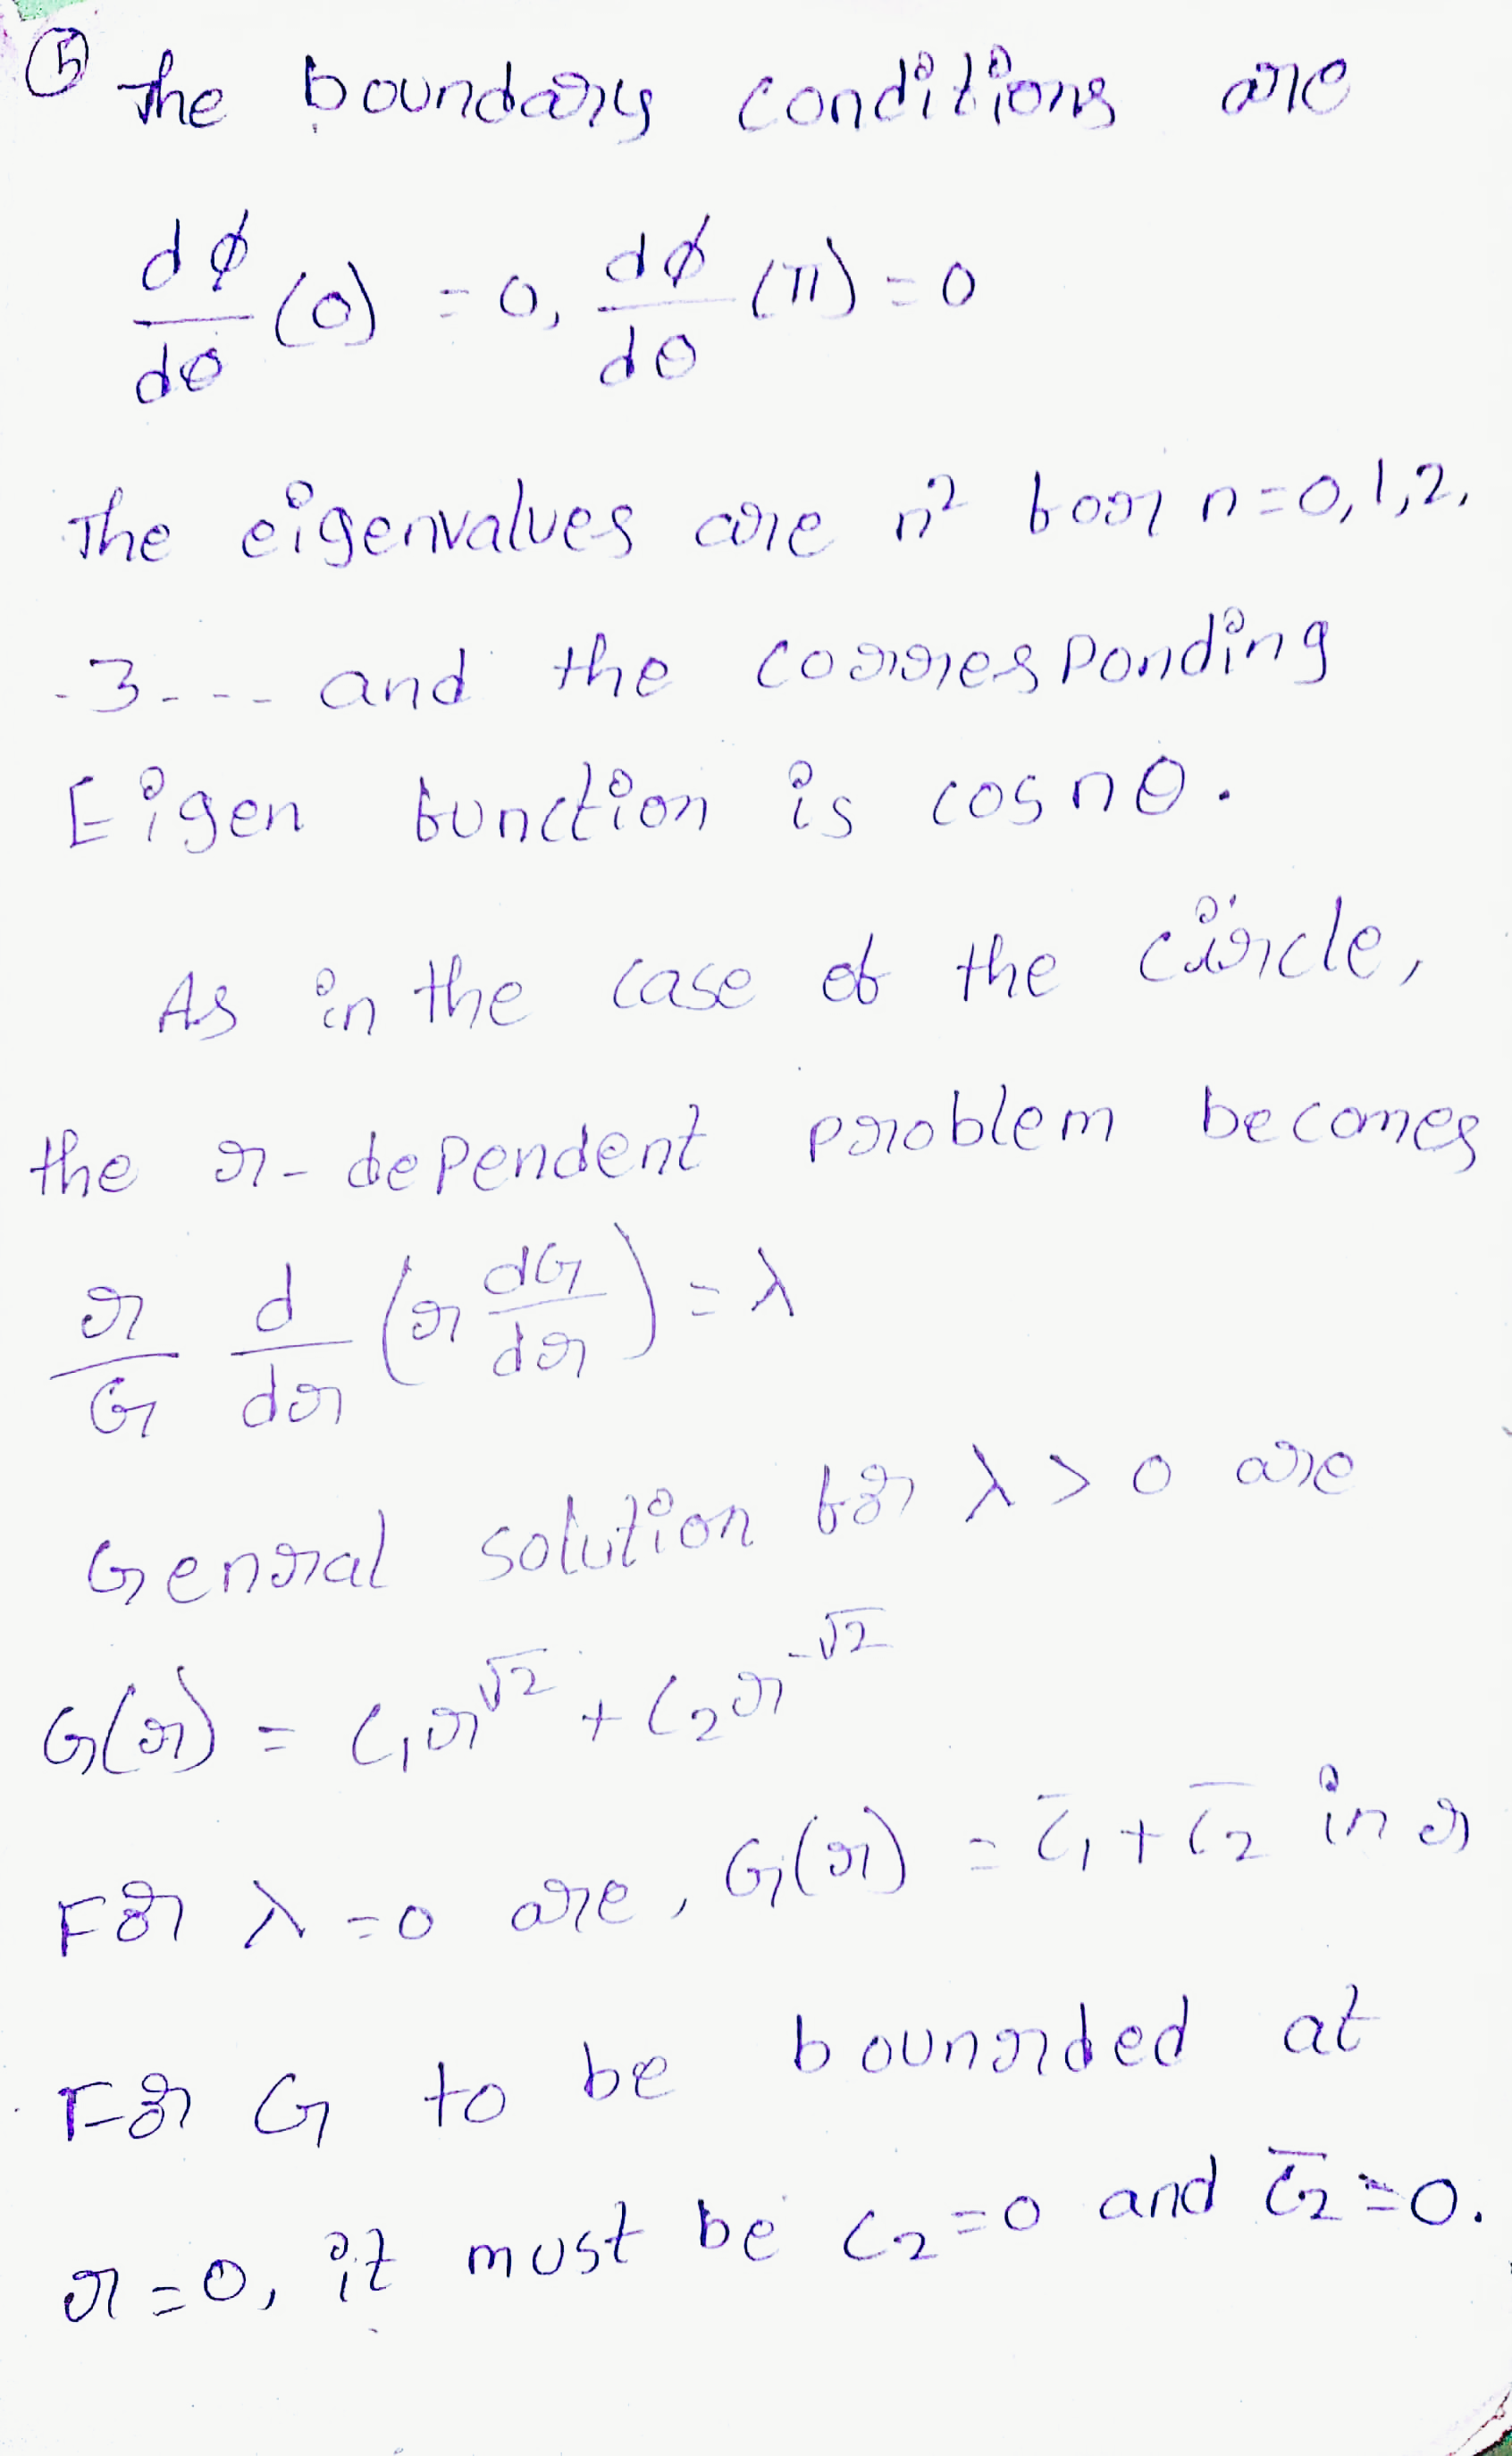 (b) The boundary conditions are
dϕ/dθ (0) = 0, dϕ/dθ (π) = 0
The eigenvalues are n² for n=0,1,2,
-3---- and the corresponding
Eigen function is cos nθ.
As in the case of the circle,
the r-dependent problem becomes
r/G d/dr (r dG/dr) = λ
Genral solution for λ > 0 are
G(r) = c₁r^√2 + c₂r^-√2
For λ = 0 are, G(r) = c̄₁ + c̄₂ in r
For G to be bounrded at
r=0, it must be c₂=0 and c̄₂=0.